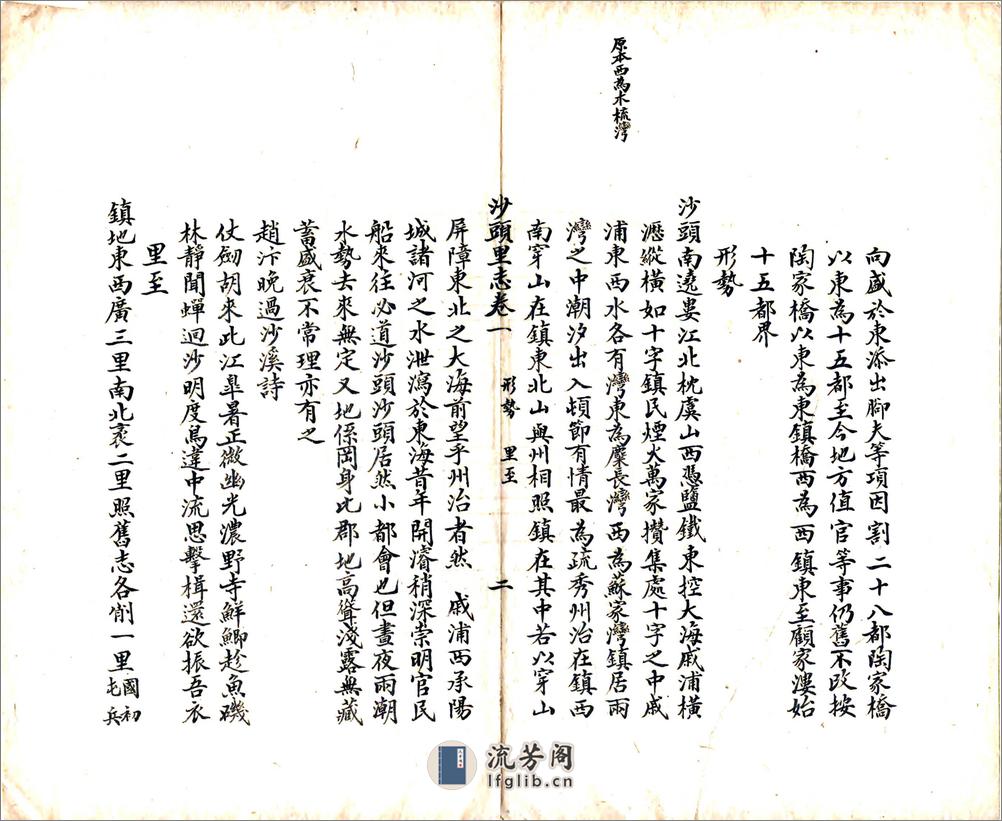 原本西為木梳灣
向盛於東添出腳夫等項因割二十八都陶家橋
以東為十五都至今地方值官等事仍舊不改按
陶家橋以東為東鎮橋西為西鎮東至顧家漊始
十五都界
形勢
沙頭南遶婁江北枕虞山西憑鹽鐵東控大海戚浦橫
瀝縱橫如十字鎮民煙火萬家攢集處十字之中戚
浦東西水各有灣東為糜長灣西為蘇家灣鎮居兩
灣之中潮汐出入頓節有情最為疏秀州治在鎮西
南穿山在鎮東北山與州相照鎮在其中若以穿山
沙頭里志卷一 形勢 里至 二
屏障東北之大海前望乎州治者然 戚浦西承陽
城諸河之水泄瀉於東海昔年開濬稍深崇明官民
船來往必道沙頭沙頭居然小都會也但晝夜兩潮
水勢去來無定又地係岡身比郡地高聳淺露無藏
蓄盛衰不常理亦有之
趙汴晚過沙溪詩
仗劒胡來此江臯暑正微幽光濃野寺鮮鯽趁魚磯
林靜聞蟬迴沙明度鳥違中流思擊楫還欲振吾衣
里至
鎮地東西廣三里南北袤二里照舊志各削一里國初屯兵
流芳阁
lfglib.cn